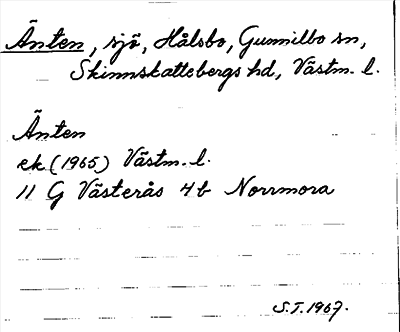 Änten, sjö, Hålsbo, Gunnilbo sn,
Skinnskattebergs hd, Västm. l.
Änten
ek (1965) Västm. l.
11 G Västerås 4b Norrmora
S.T. 1967.